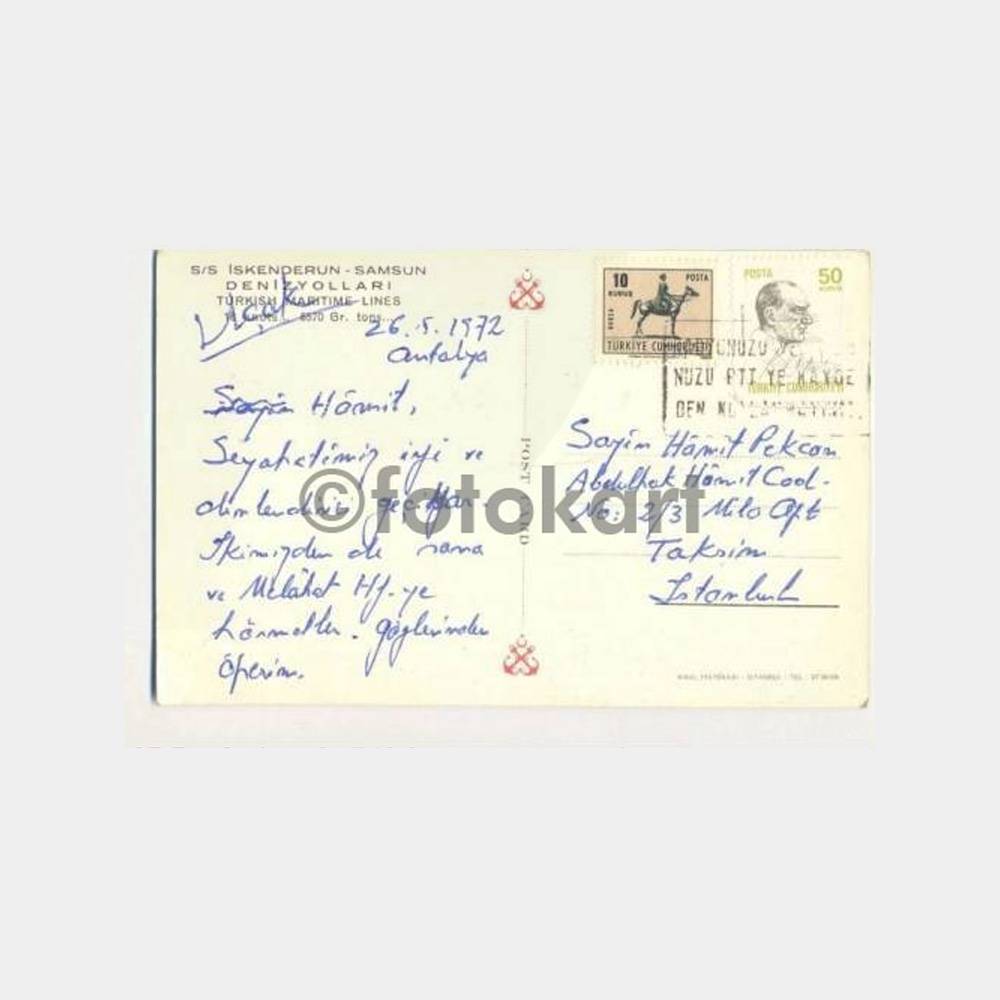 S/S İSKENDERUN - SAMSUN
DENİZYOLLARI
TURKISH MARITIME LINES
Gr. tons...
Uçak
26.5.1972
Antalya
Sayın Hâmit,
Seyahatimiz iyi ve
İkimizden de sana
ve Melâhat Hf-ye
hörmetler. gözlerinden
öperim.
POST CARD
10
KURUŞ
POSTA
TÜRKİYE CUMHURİYETİ
POSTA
50
KURUŞ
TÜRKİYE CUMHURİYETİ
NUZU PTT YE KAYDE
DEN
Sayın Hâmit Pekcan
Abdulhak Hâmit Cad.
No: 2/3 Milo Apt
Taksim
İstanbul
©fotokart